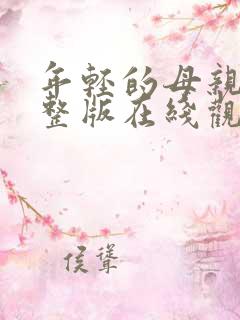 年轻的母親
整版在綫觀
侯聳